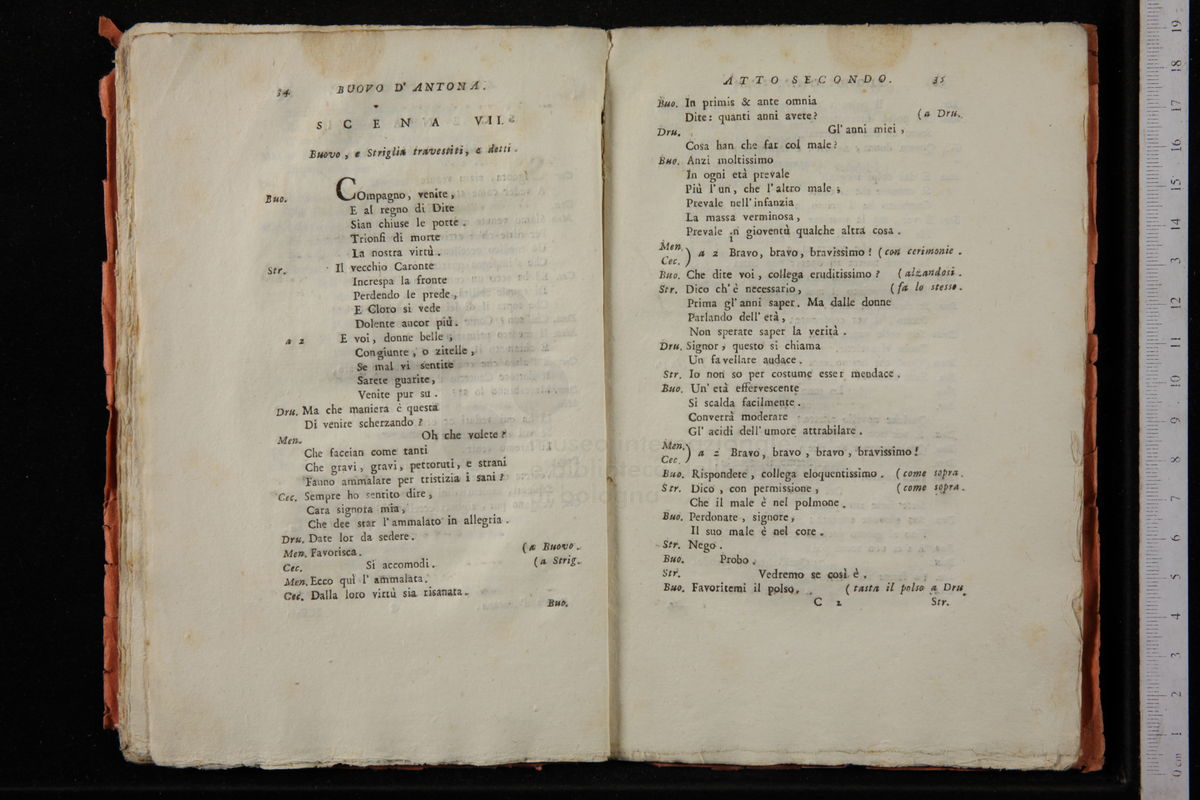 34 BUOVO D' ANTONA.
SCENA VII.
Buovo, e Striglia travestiti, e detti.
Buo. COmpagno, venite,
E al regno di Dite
Sian chiuse le porte.
Trionfi di morte
La nostra virtù.
Str. Il vecchio Caronte
Increspa la fronte
Perdendo le prede,
E Cloro si vede
Dolente ancor più.
a 2 E voi, donne belle,
Congiunte, o zitelle,
Se mal vi sentite
Sarete guarite,
Venite pur su.
Dru. Ma che maniera è questa
Di venire scherzando?
Men. Oh che volete?
Che faccian come tanti
Che gravi, gravi, pettoruti, e strani
Fanno ammalare per tristizia i sani?
Cec. Sempre ho sentito dire,
Cara signora mia,
Che dee star l'ammalato in allegria.
Dru. Date lor da sedere.
Men. Favorisca. (a Buovo.
Cec. Si accomodi. (a Strig.
Men. Ecco quì l'ammalata.
Cec. Dalla loro virtù sia risanata.
Buo.
ATTO SECONDO. 35
Buo. In primis & ante omnia
Dite: quanti anni avete? (a Dru.
Dru. Gl'anni miei,
Cosa han che far col male?
Buo. Anzi moltissimo
In ogni età prevale
Più l'un, che l'altro male;
Prevale nell'infanzia
La massa verminosa,
Prevale in gioventù qualche altra cosa.
Men. Cec. ) a 2 Bravo, bravo, bravissimo! (con cerimonie.
Buo. Che dite voi, collega eruditissimo? (alzandosi.
Str. Dico ch'è necessario, (fa lo stesso.
Prima gl'anni saper. Ma dalle donne
Parlando dell'età,
Non sperate saper la verità.
Dru. Signor, questo si chiama
Un favellare audace.
Str. Io non so per costume esser mendace.
Buo. Un'età effervescente
Si scalda facilmente.
Converrà moderare
Gl'acidi dell'umore attrabilare.
Men. Cec. ) a 2 Bravo, bravo, bravo, bravissimo!
Buo. Rispondete, collega eloquentissimo. (come sopra.
Str. Dico, con permissione, (come sopra.
Che il male è nel polmone.
Buo. Perdonate, signore,
Il suo male è nel core.
Str. Nego.
Buo. Probo.
Str. Vedremo se così è.
Buo. Favoritemi il polso. (tasta il polso a Dru.
C 2 Str.